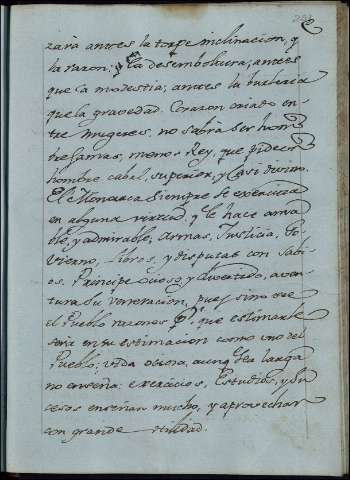 zará antes la torpe inclinacion, q̃
la razon; y la desemboltura, antes
que la modestia; antes la burleria
que la gravedad. Corazon criado en-
tre mugeres, no sabrá ser hom
bre jamas, menos Rey, que pide un
hombre cabal, superior, y casi divino.
El Monarca siempre se exercita
en alguna virtud, q̃ le hace ama
ble, y admirable, Armas, Justicia, Go-
vierno, Libros, y disputas con Sabi
os. Principe ocioso, y divertido, aven
tura su veneracion, pues sino vee
el Pueblo razones pr. que estimarle
será en su estimacion como uno del
Pueblo; vida ociosa, aunq̃ sea larga
no enseña: exercicios, Estudios, y Su
cesos enseñan mucho, y aprovechan
con grande utilidad.